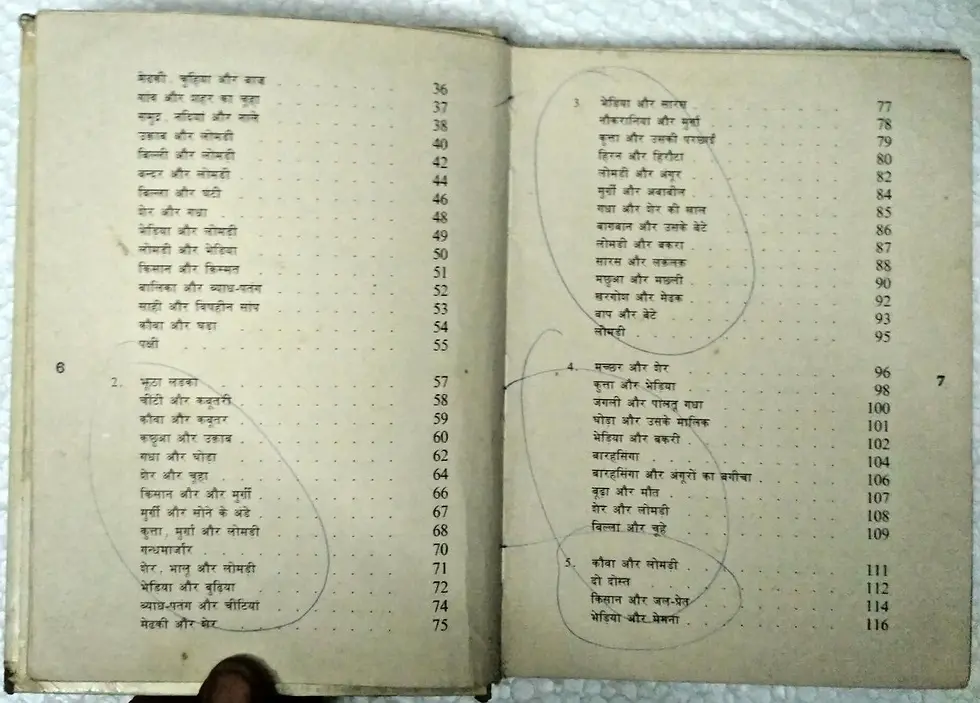 मेढकी, चुहिया और बाज 36
गांव और शहर का चूहा 37
समुद्र, नदियां और नाले 38
उक़ाब और लोमड़ी 40
बिल्ली और लोमड़ी 42
बन्दर और लोमड़ी 44
बिल्ला और घंटी 46
शेर और गधा 48
भेड़िया और लोमड़ी 49
लोमड़ी और भेड़िया 50
किसान और क़िस्मत 51
बालिका और व्याध-पतंग 52
साही और विषहीन सांप 53
कौवा और घड़ा 54
पक्षी 55
6
2. झूठा लड़का 57
चींटी और कबूतरी 58
कौवा और कबूतर 59
कछुआ और उक़ाब 60
गधा और घोड़ा 62
शेर और चूहा 64
किसान और और मुर्ग़ी 66
मुर्ग़ी और सोने के अंडे 67
कुत्ता, मुर्ग़ा और लोमड़ी 68
गन्धमार्जार 70
शेर, भालू और लोमड़ी 71
भेड़िया और बुढ़िया 72
व्याध-पतंग और चींटियां 74
मेढकी और शेर 75
3. भेड़िया और सारस 77
नौकरानियां और मुर्ग़ा 78
कुत्ता और उसकी परछाईं 79
हिरन और हिरौटा 80
लोमड़ी और अंगूर 82
मुर्ग़ी और अबाबील 84
गधा और शेर की खाल 85
बाग़बान और उसके बेटे 86
लोमड़ी और बकरा 87
सारस और लकलक 88
मछुआ और मछली 90
ख़रगोश और मेढक 92
बाप और बेटे 93
लोमड़ी 95
4. मच्छर और शेर 96
कुत्ता और भेड़िया 98
जंगली और पालतू गधा 100
घोड़ा और उसके मालिक 101
भेड़िया और बकरी 102
बारहसिंगा 104
बारहसिंगा और अंगूरों का बग़ीचा 106
बूढ़ा और मौत 107
शेर और लोमड़ी 108
बिल्ला और चूहे 109
7
5. कौवा और लोमड़ी 111
दो दोस्त 112
किसान और जल-प्रेत 114
भेड़िया और मेमना 116